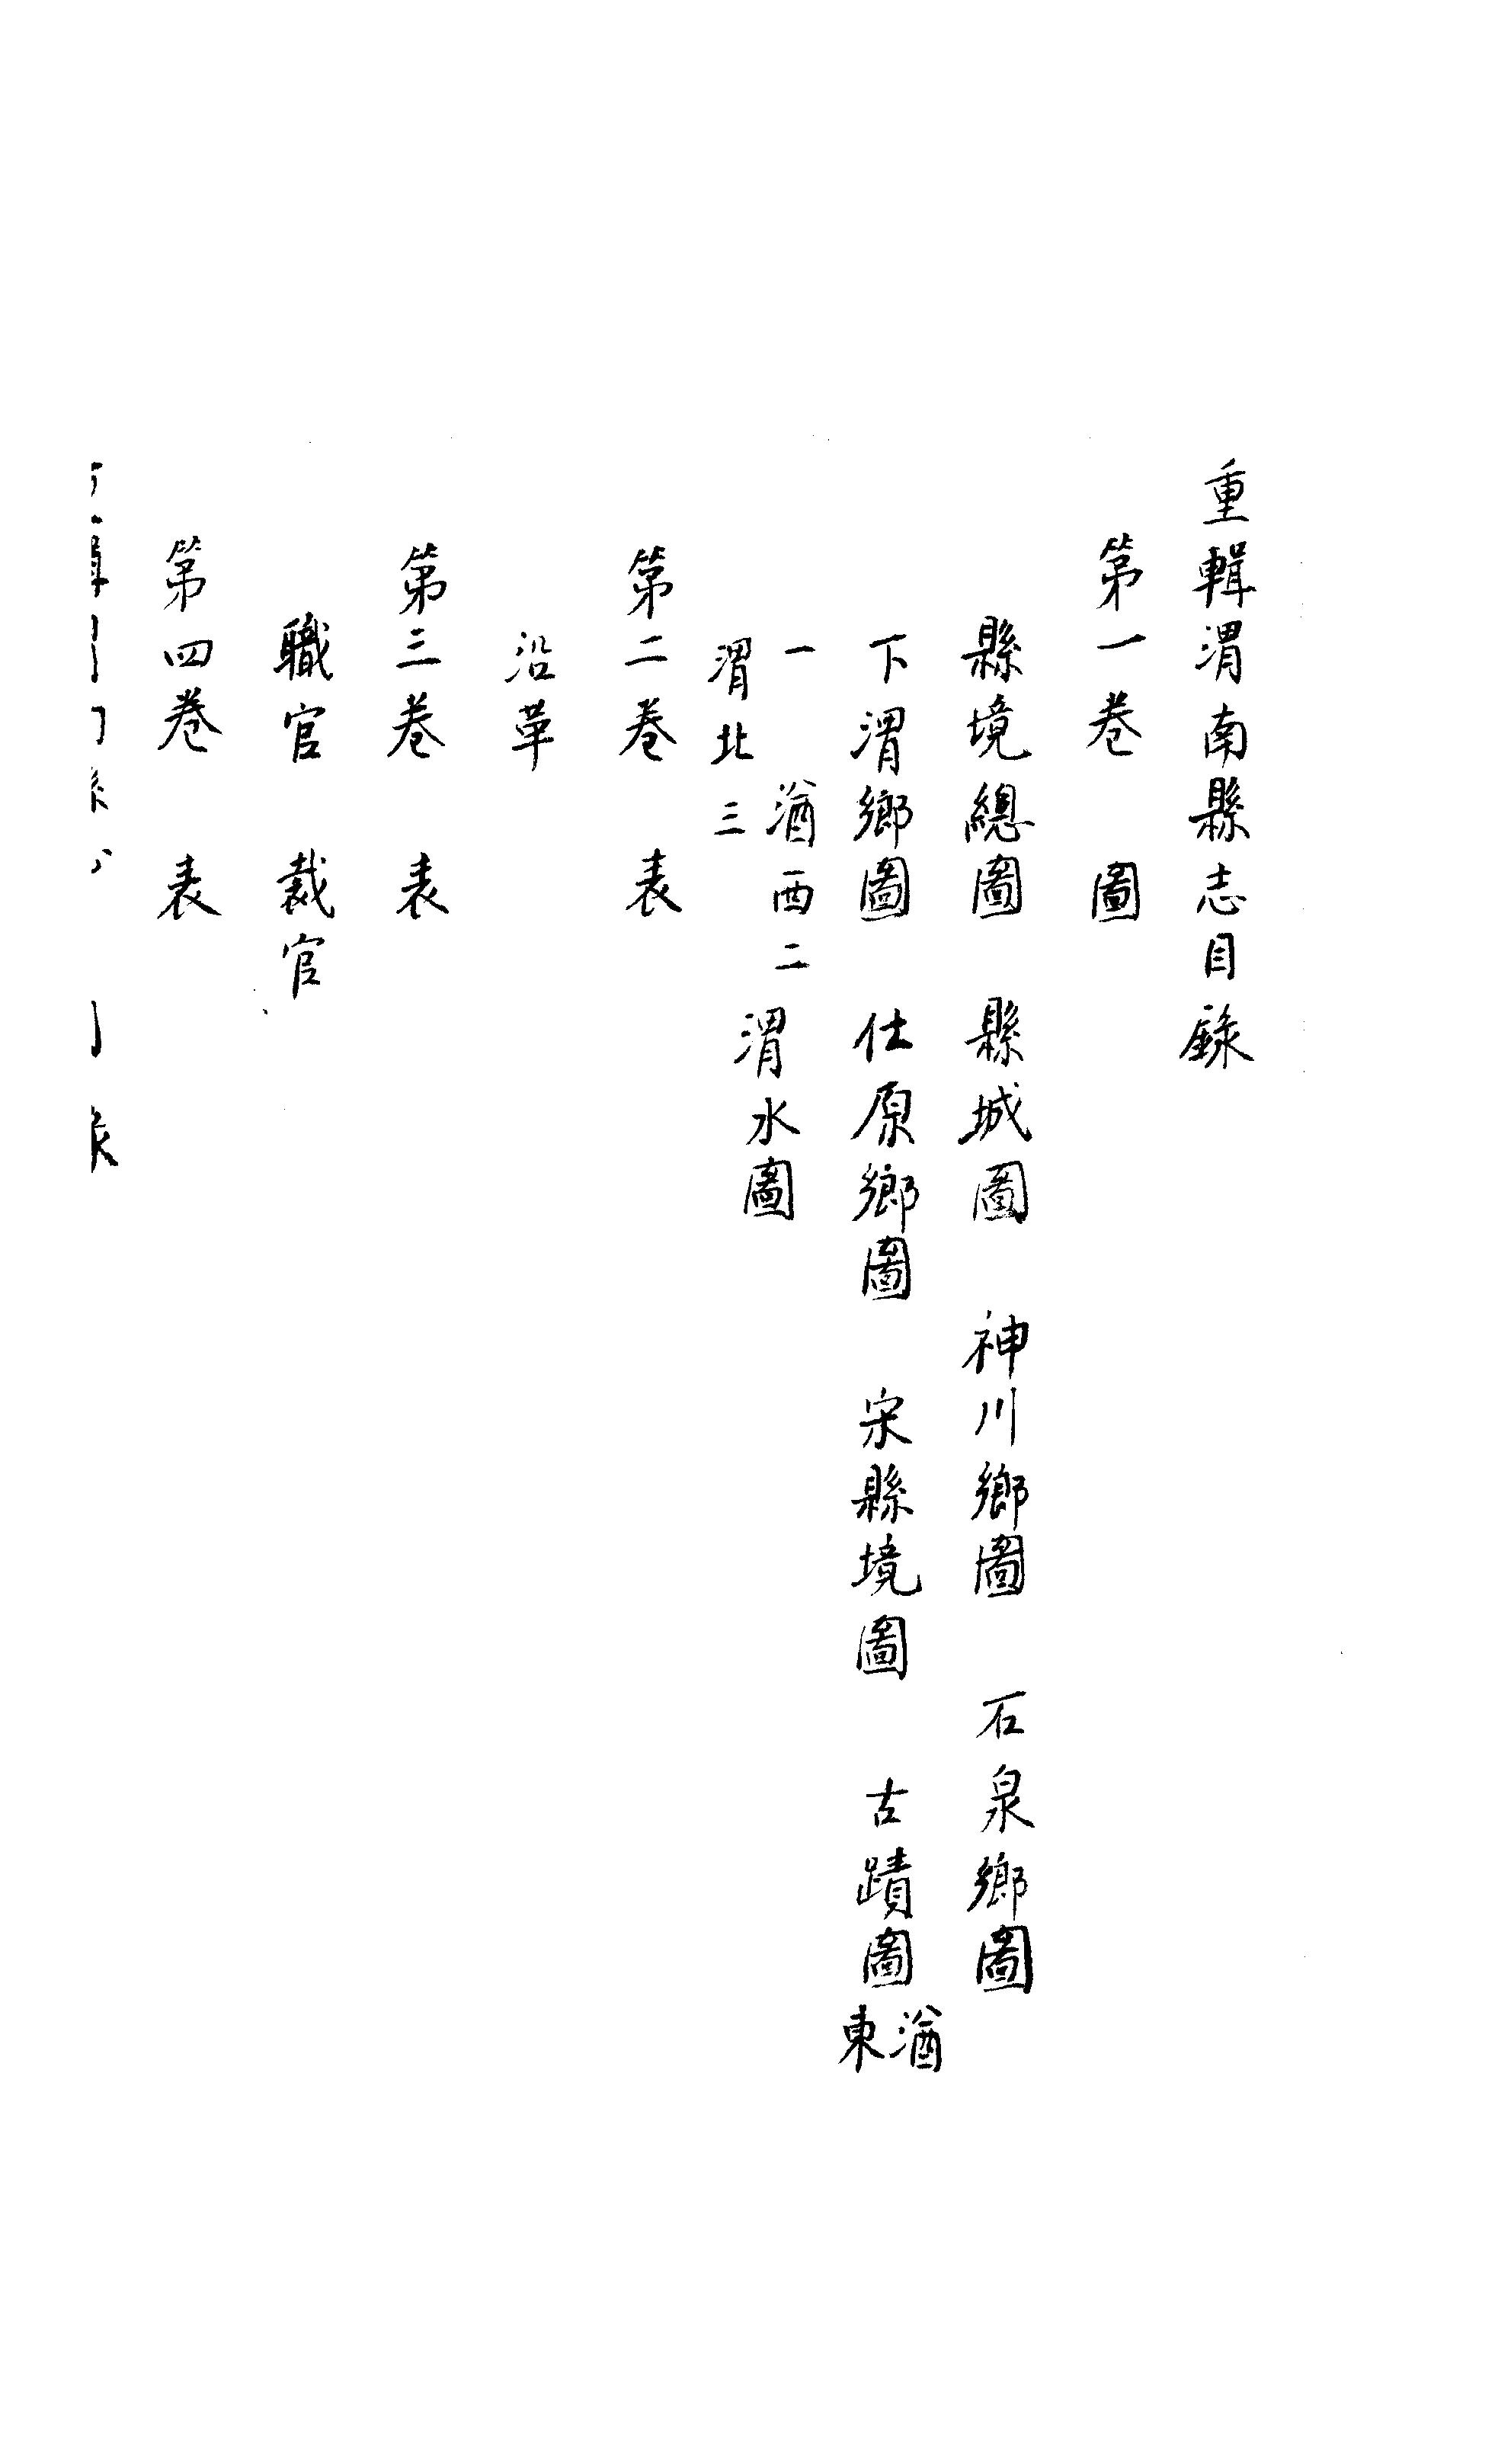 重輯渭南縣志目錄
第一卷 圖
縣境總圖 縣城圖 神川鄉圖 石泉鄉圖
下渭鄉圖 仕原鄉圖 宋縣境圖 古蹟圖 湭東
一 湭西二 渭北三 渭水圖
第二卷 表
沿革
第三卷 表
職官 裁官
第四卷 表